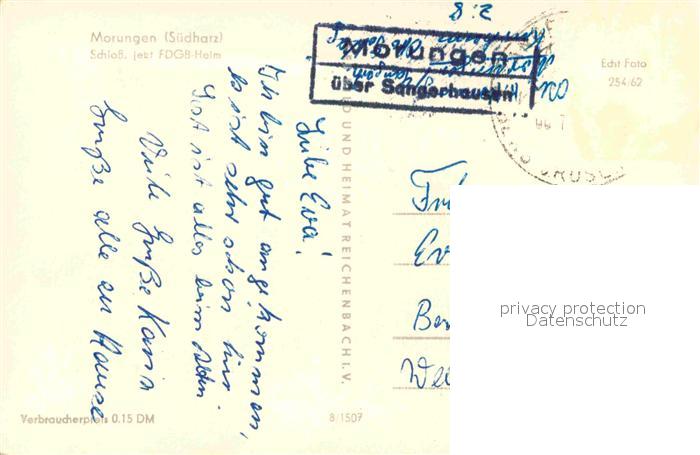 Morungen (Südharz)
Schloß, jetzt FDGB-Heim
2.8.
Morungen
über Sangerhausen
Echt Foto
254/62
Liebe Eva!
Ich bin gut angekommen,
es ist sehr schön hier.
Sonst ist alles beim alten.
Viele Grüße Karin
Grüße alle zu Hause
BILD UND HEIMAT REICHENBACH I. V.
Ev
privacy protection
Datenschutz
Verbraucherpreis 0.15 DM
8/1507